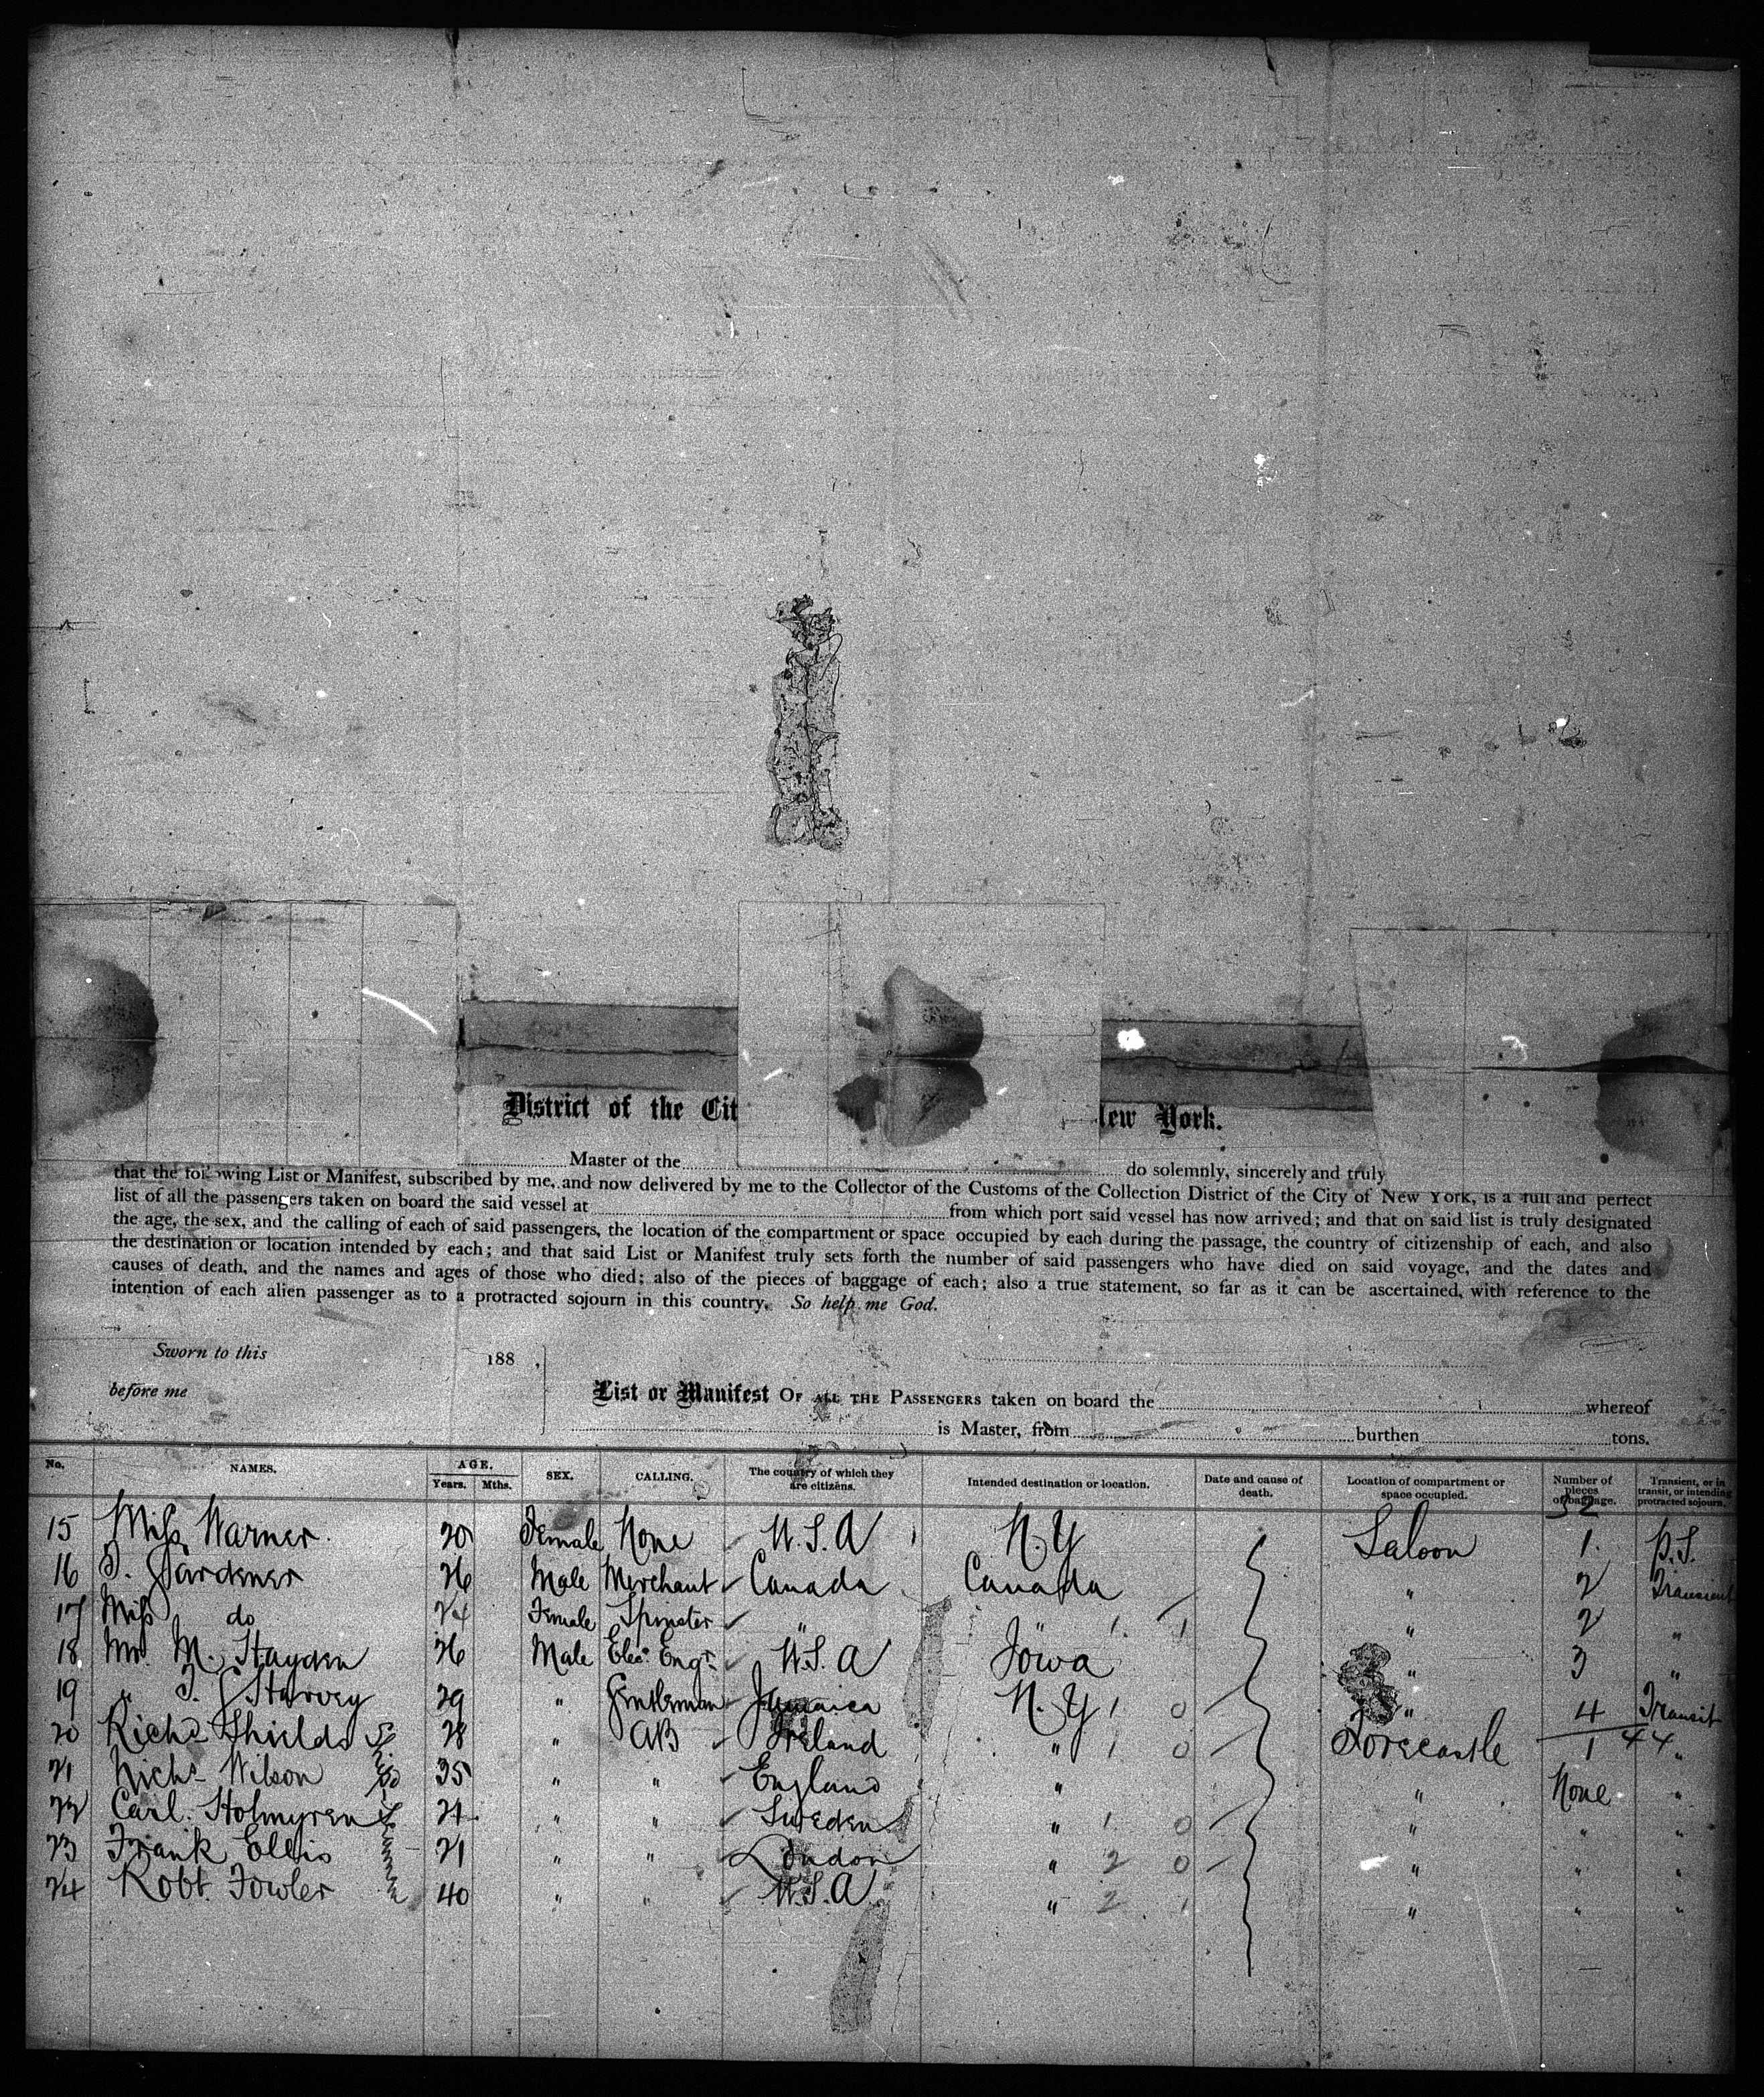 District of the Cit ew York.
Master of the do solemnly, sincerely and truly
that the following List or Manifest, subscribed by me, and now delivered by me to the Collector of the Customs of the Collection District of the City of New York, is a full and perfect
list of all the passengers taken on board the said vessel at from which port said vessel has now arrived; and that on said list is truly designated
the age, the sex, and the calling of each of said passengers, the location of the compartment or space occupied by each during the passage, the country of citizenship of each, and also
the destination or location intended by each; and that said List or Manifest truly sets forth the number of said passengers who have died on said voyage, and the dates and
causes of death, and the names and ages of those who died; also of the pieces of baggage of each; also a true statement, so far as it can be ascertained, with reference to the
intention of each alien passenger as to a protracted sojourn in this country. So help me God.
Sworn to this 188 ,
before me
List or Manifest OF ALL THE PASSENGERS taken on board the whereof
is Master, from burthen tons.
No. NAMES. AGE. Years. Mths. SEX. CALLING. The country of which they are citizens. Intended destination or location. Date and cause of death. Location of compartment or space occupied. Number of pieces of baggage. Transient, or in transit, or intending protracted sojourn.
32
15 Miss Warner. 20 Female None U.S.A N.Y Saloon 1. P.S.
16 T. Gardener 26 Male Merchant Canada Canada " 2 Transient
17 Miss do 24 Female Spinster " " 1 1 " 2 "
18 Mr. M. Hayden 26 Male Elec. Engr. U.S.A Iowa " 3 "
19 " T. Harvey 29 " Gentleman Jamaica N.Y 1 0 " 4 Transit
20 Richd Shields 28 " AB Ireland " 1 0 Forecastle 1 44 "
21 Nichs Wilson 35 " " England " " None "
22 Carl. Holmgren 24 " " Sweden " 1 0 " " "
23 Frank Ellis 21 " " London " 2 0 " " "
24 Robt. Fowler 40 " " U.S.A " 2 1 " " "